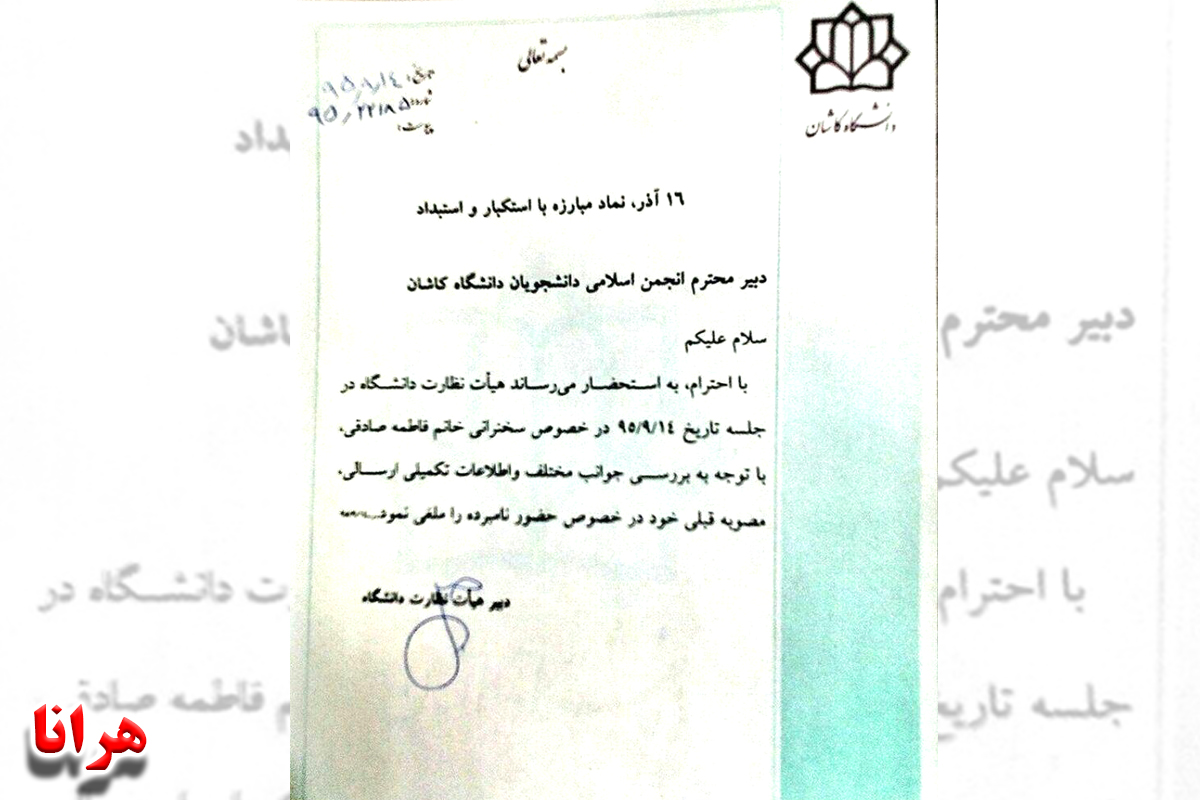 بسمه تعالی
دانشگاه کاشان
تاریخ: ۹۵/۹/۱۴
شماره: ۹۵/۲۲۱۸۵
پیوست:
۱۶ آذر، نماد مبارزه با استکبار و استبداد
دبیر محترم انجمن اسلامی دانشجویان دانشگاه کاشان
سلام علیکم
با احترام، به استحضار می‌رساند هیأت نظارت دانشگاه در
جلسه تاریخ ۹۵/۹/۱٤ در خصوص سخنرانی خانم فاطمه صادقی،
با توجه به بررسی جوانب مختلف واطلاعات تکمیلی ارسالی،
مصوبه قبلی خود در خصوص حضور نامبرده را ملغی
دبیر هیأت نظارت دانشگاه
هرانا